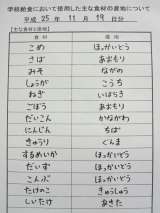 学校給食において使用した主な食材の産地について
平成 25年 11月 19日分
【主な食材と産地】
食材 産地
こめ ほっかいどう
さば あおもり
みそ ながの
しょうが こうち
ねぎ いばらき
ごぼう あおもり
だいこん かながわ
にんじん ちば
きゅうり ぐんま
するめいか ほっかいどう
だいず ほっかいどう
こんぶ ほっかいどう
たけのこ きゅうしゅう
しいたけ あきた